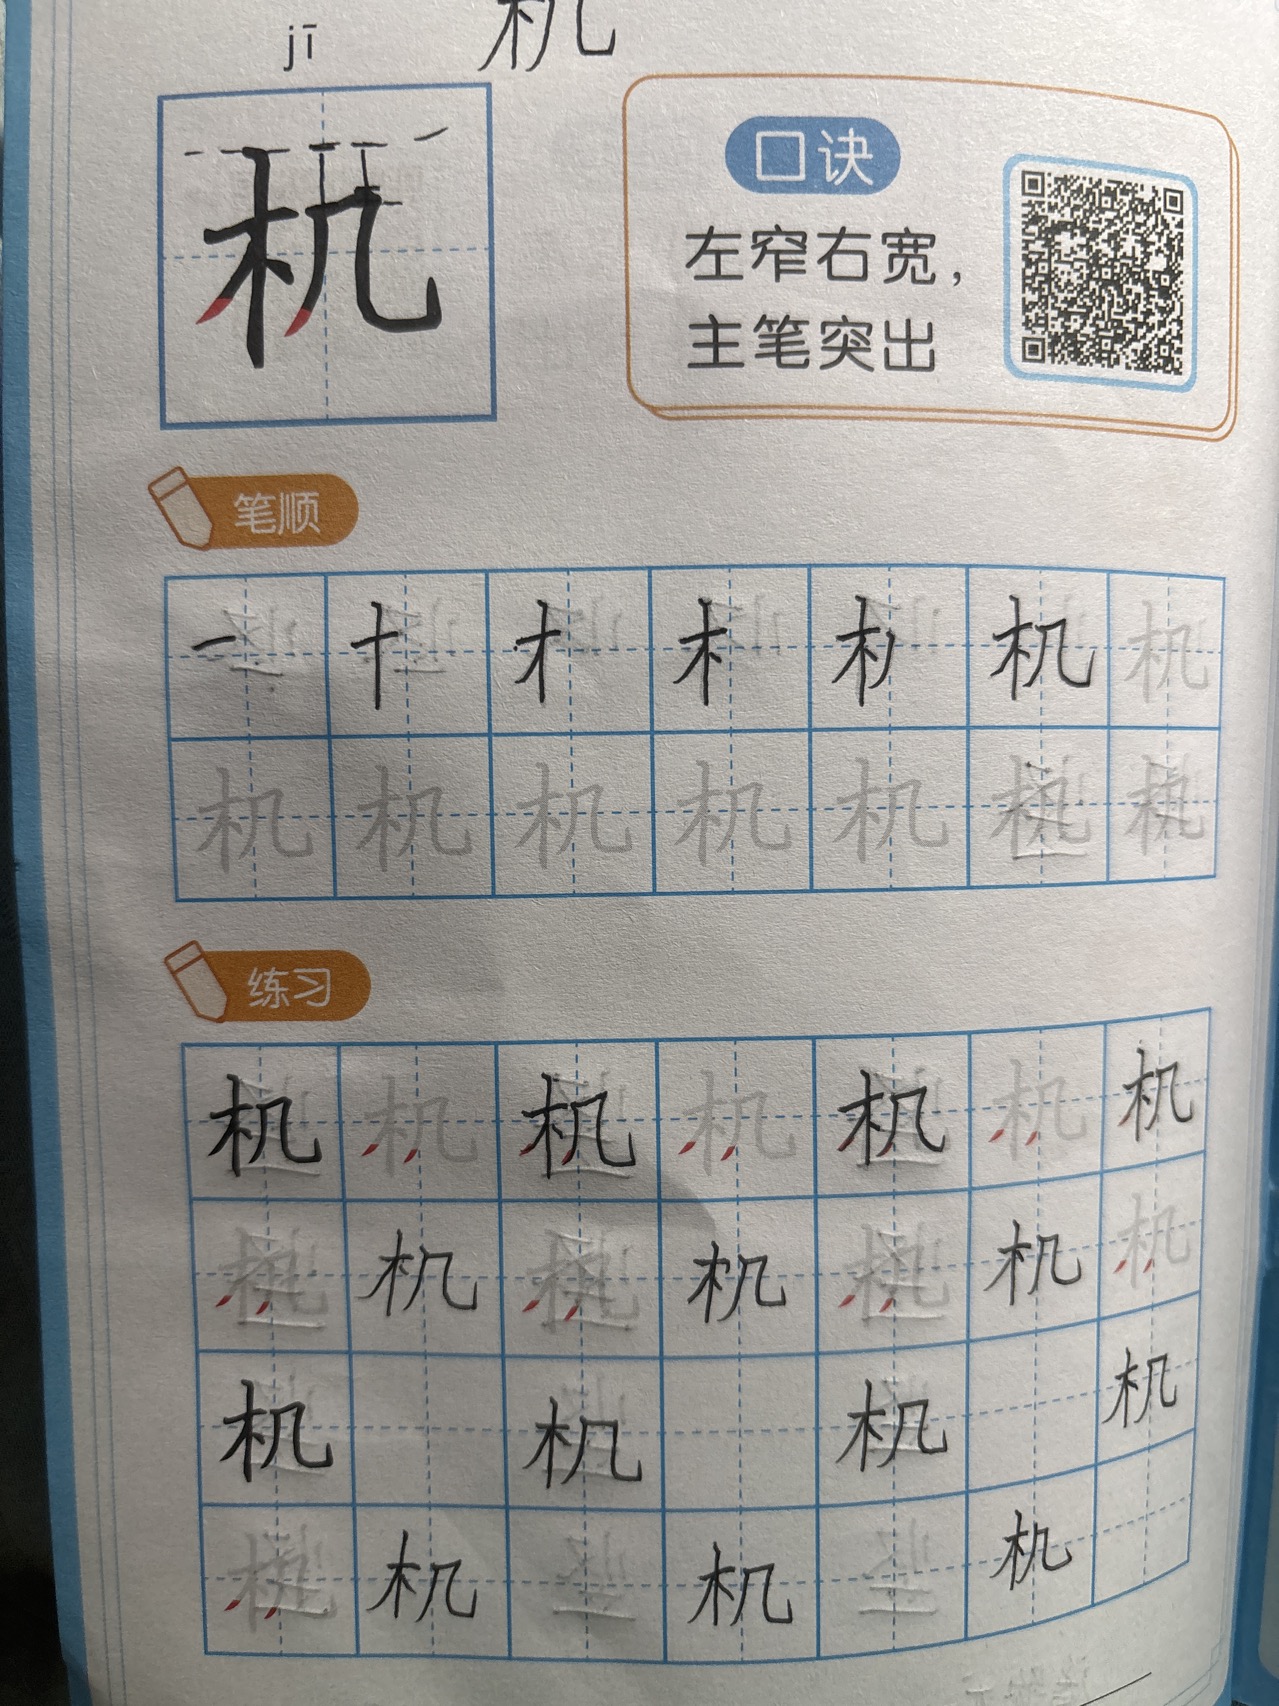 jī 机
机
口诀
左窄右宽，
主笔突出
笔顺
一 十 才 木 机 机
机 机 机 机 机 机 机
练习
机 机 机 机 机 机 机
机 机 机 机 机 机 机
机 机 机 机
机 机 机 机